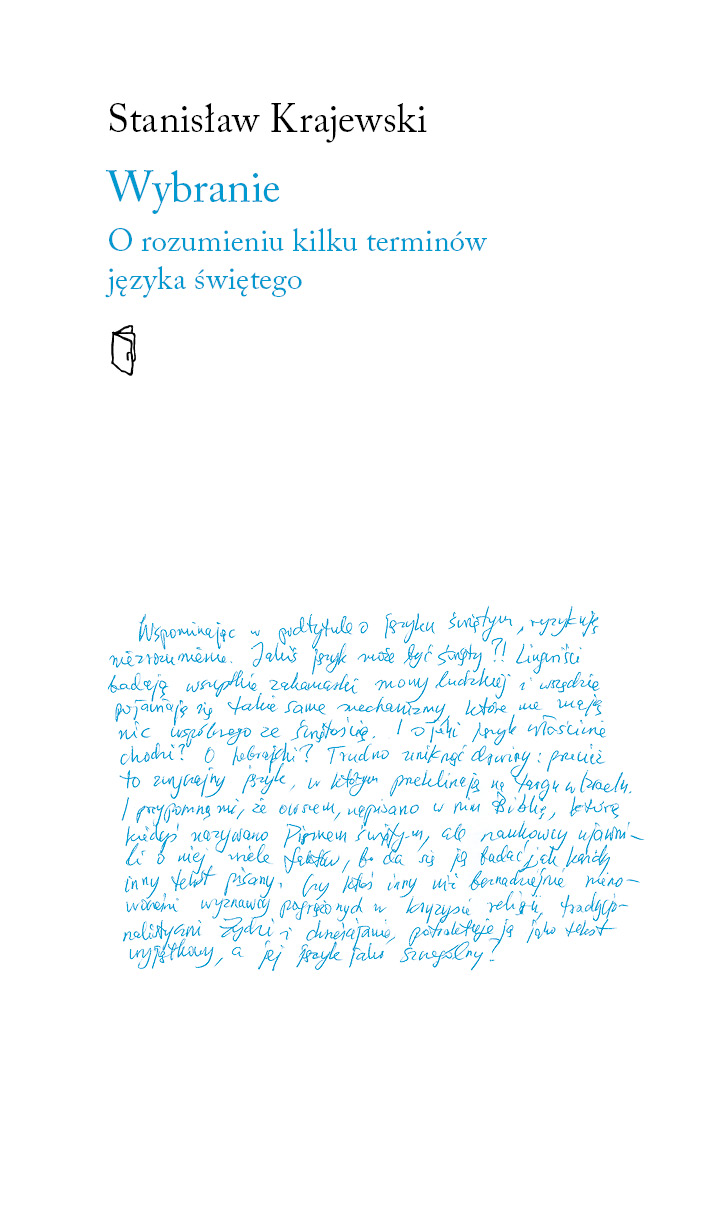 Stanisław Krajewski
Wybranie
O rozumieniu kilku terminów
języka świętego
Wspominając w podtytule o języku świętym, ryzykuję
niezrozumienie. Jakiś język może być święty?! Lingwiści
badają wszystkie zakamarki mowy ludzkiej i wszędzie
pojawiają się takie same mechanizmy, które nie mają
nic wspólnego ze świętością. I o jaki język właściwie
chodzi? O hebrajski? Trudno uniknąć drwiny: przecież
to zwyczajny język, w którym przeklinają na targu w Izraelu.
I przypomną mi, że owszem, napisano w nim Biblię, którą
kiedyś nazywano Pismem świętym, ale naukowcy ujawni-
li o niej wiele faktów, bo da się ją badać jak każdy
inny tekst pisany. Czy ktoś inny niż beznadziejnie nieno-
wocześni wyznawcy pogrążonych w kryzysie religii, tradycjo-
nalistyczni Żydzi i chrześcijanie, potraktuje ją jako tekst
wyjątkowy, a jej język jako szczególny?